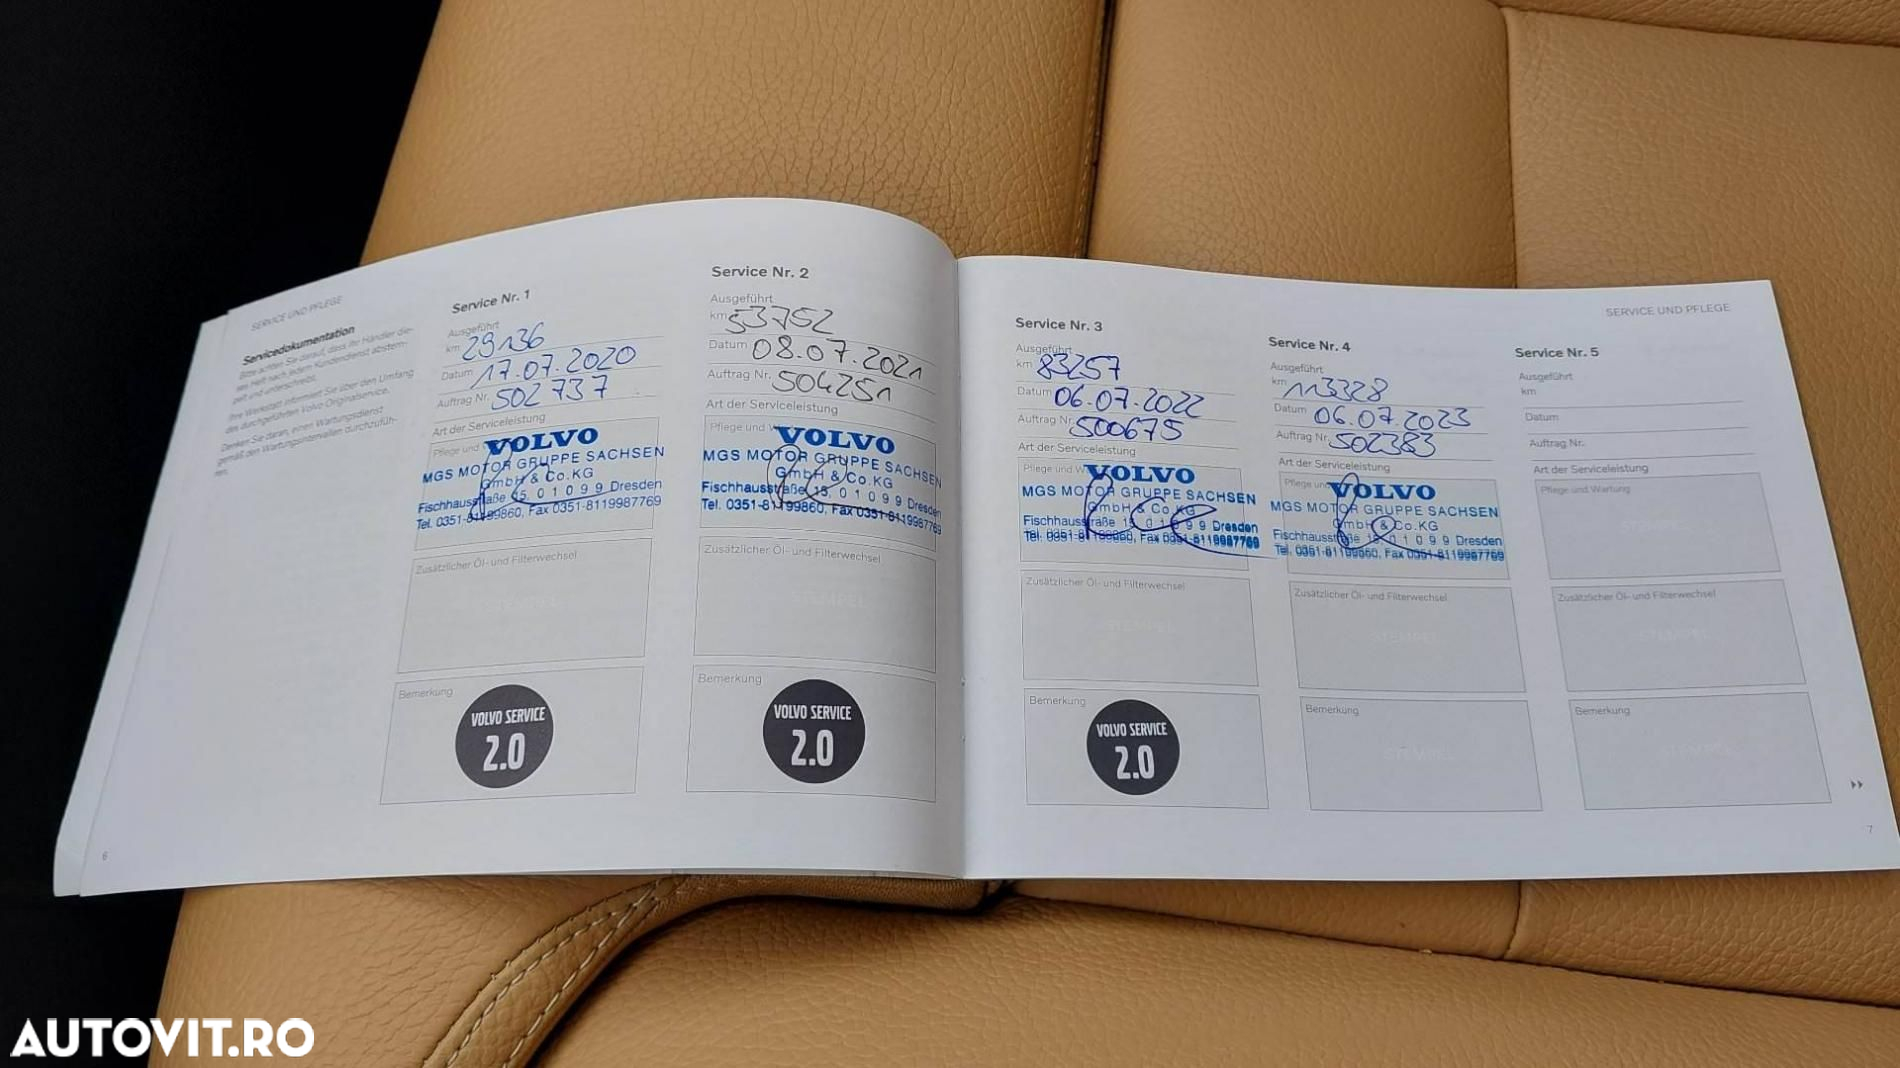 SERVICE UND PFLEGE
Servicedokumentation
Bitte achten Sie darauf, dass Ihr Händler die-
ses Heft nach jedem Kundendienst abstem-
pelt und unterschreibt.
Ihre Werkstatt informiert Sie über den Umfang
des durchgeführten Volvo Originalservice.
Denken Sie daran, einen Wartungsdienst
gemäß den Wartungsintervallen durchzufüh-
ren.
6
Service Nr. 1
Ausgeführt
km 29136
Datum 17.07.2020
Auftrag Nr. 502737
Art der Serviceleistung
Pflege und
VOLVO
MGS MOTOR GRUPPE SACHSEN
GmbH & Co.KG
Fischhausstraße 15, 01099 Dresden
Tel. 0351-81199860, Fax 0351-8119987769
Zusätzlicher Öl- und Filterwechsel
STEMPEL
Bemerkung
VOLVO SERVICE
2.0
Service Nr. 2
Ausgeführt
km 53752
Datum 08.07.2021
Auftrag Nr. 504251
Art der Serviceleistung
Pflege und W
VOLVO
MGS MOTOR GRUPPE SACHSEN
GmbH & Co.KG
Fischhausstraße 15, 01099 Dresden
Tel. 0351-81199860, Fax 0351-8119987769
Zusätzlicher Öl- und Filterwechsel
STEMPEL
Bemerkung
VOLVO SERVICE
2.0
SERVICE UND PFLEGE
Service Nr. 3
Ausgeführt
km 83257
Datum 06.07.2022
Auftrag Nr. 500675
Art der Serviceleistung
Pflege und W
VOLVO
MGS MOTOR GRUPPE SACHSEN
GmbH & Co.KG
Fischhausstraße 15, 01099 Dresden
Tel. 0351-81199860, Fax 0351-8119987769
Zusätzlicher Öl- und Filterwechsel
STEMPEL
Bemerkung
VOLVO SERVICE
2.0
Service Nr. 4
Ausgeführt
km 113328
Datum 06.07.2023
Auftrag Nr. 502383
Art der Serviceleistung
Pflege und
VOLVO
MGS MOTOR GRUPPE SACHSEN
GmbH & Co.KG
Fischhausstraße 15, 01099 Dresden
Tel. 0351-81199860, Fax 0351-8119987769
Zusätzlicher Öl- und Filterwechsel
STEMPEL
Bemerkung
STEMPEL
Service Nr. 5
Ausgeführt
km
Datum
Auftrag Nr.
Art der Serviceleistung
Pflege und Wartung
STEMPEL
Zusätzlicher Öl- und Filterwechsel
STEMPEL
Bemerkung
STEMPEL
7
AUTOVIT.RO